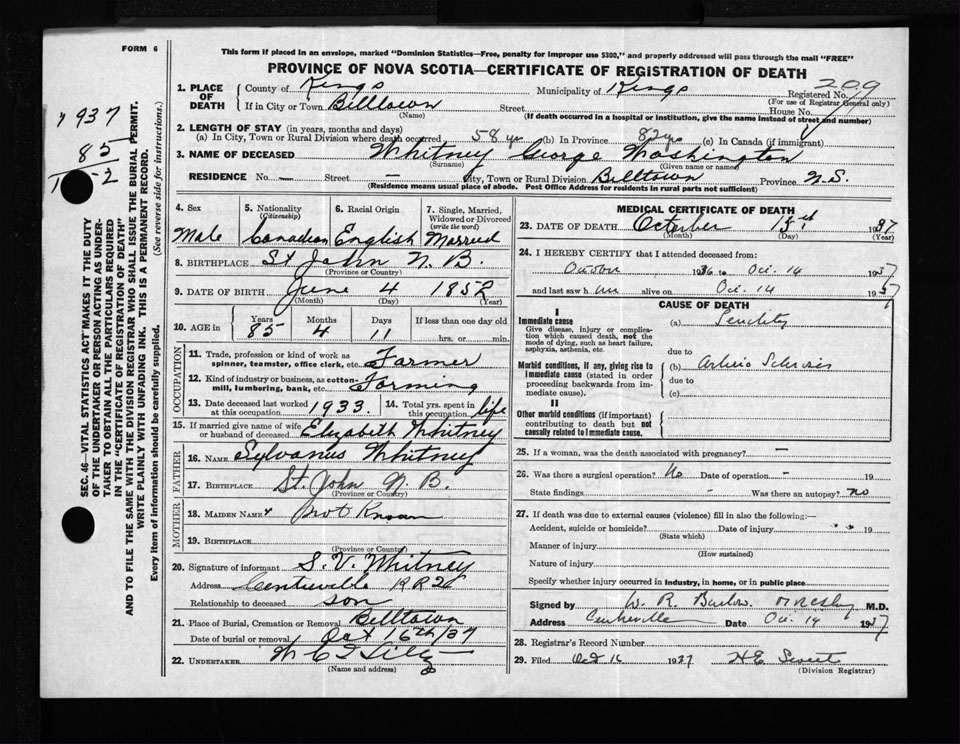 FORM 6
This form if placed in an envelope, marked "Dominion Statistics—Free, penalty for improper use $300," and properly addressed will pass through the mail "FREE"
PROVINCE OF NOVA SCOTIA—CERTIFICATE OF REGISTRATION OF DEATH
1937
85
SEC. 46—VITAL STATISTICS ACT "MAKES IT THE DUTY
OF THE UNDERTAKER OR PERSON ACTING AS UNDER-
TAKER TO OBTAIN ALL THE PARTICULARS REQUIRED
IN THE "CERTIFICATE OF REGISTRATION OF DEATH"
AND TO FILE THE SAME WITH THE DIVISION REGISTRAR WHO SHALL ISSUE THE BURIAL PERMIT.
WRITE PLAINLY WITH UNFADING INK. THIS IS A PERMANENT RECORD.
Every item of information should be carefully supplied. (See reverse side for instructions.)
1. PLACE OF DEATH County of Kings Municipality of Kings Registered No. 209
(For use of Registrar General only)
If in City or Town Billtown Street House No.
(Name) (If death occurred in a hospital or institution, give the name instead of street and number)
2. LENGTH OF STAY (in years, months and days)
(a) In City, Town or Rural Division where death occurred 58 yr (b) In Province 82 yr (c) In Canada (if immigrant)
3. NAME OF DECEASED Whitney George Washington
(Surname) (Given name or names)
RESIDENCE No. — Street — City, Town or Rural Division Billtown Province N.S.
(Residence means usual place of abode. Post Office Address for residents in rural parts not sufficient)
4. Sex 5. Nationality (Citizenship) 6. Racial Origin 7. Single, Married, Widowed or Divorced (write the word)
Male Canadian English Married
8. BIRTHPLACE St John N.B.
(Province or Country)
9. DATE OF BIRTH June 4 1852
(Month) (Day) (Year)
10. AGE in Years Months Days If less than one day old
85 4 11 hrs. or min.
OCCUPATION
11. Trade, profession or kind of work as spinner, teamster, office clerk, etc. Farmer
12. Kind of industry or business, as cotton-mill, lumbering, bank, etc. Farming
13. Date deceased last worked at this occupation 1933. 14. Total yrs. spent in this occupation life
15. If married give name of wife or husband of deceased Elizabeth Whitney
FATHER
16. Name Sylvanus Whitney
17. Birthplace St. John N.B.
(Province or Country)
MOTHER
18. Maiden Name Not Known
19. Birthplace
(Province or Country)
20. Signature of informant S. V. Whitney
Address Centreville RR 2
Relationship to deceased son
21. Place of Burial, Cremation or Removal Billtown
Date of burial or removal Oct 16th/37
22. UNDERTAKER
(Name and address)
MEDICAL CERTIFICATE OF DEATH
23. DATE OF DEATH October 15 1937
(Month) (Day) (Year)
24. I HEREBY CERTIFY that I attended deceased from:
1936 to Oct. 14 1937
and last saw him alive on Oct. 14 1937
CAUSE OF DEATH
I
Immediate cause (a) Senility
Give disease, injury or complication which caused death, not the mode of dying, such as heart failure, asphyxia, asthenia, etc.
due to
Morbid conditions, if any, giving rise to immediate cause (stated in order proceeding backwards from immediate cause). (b) Arterio Sclerosis
due to
(c)
II
Other morbid conditions (if important) contributing to death but not causally related to immediate cause.
25. If a woman, was the death associated with pregnancy? —
26. Was there a surgical operation? No Date of operation - 19
State findings - Was there an autopsy? no
27. If death was due to external causes (violence) fill in also the following:—
Accident, suicide or homicide? Date of injury 19
(State which)
Manner of injury
(How sustained)
Nature of injury
Specify whether injury occurred in industry, in home, or in public place
Signed by W. R. M.D.
Address Centreville Date Oct. 19 1937
28. Registrar's Record Number
29. Filed Oct 16 1937 H E
(Division Registrar)